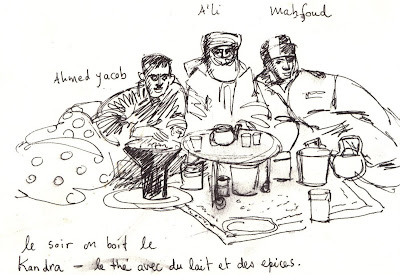 A'li
Mahfoud
Ahmed yacob
le soir on boit le
Kandra – le thé avec du lait et des epices.